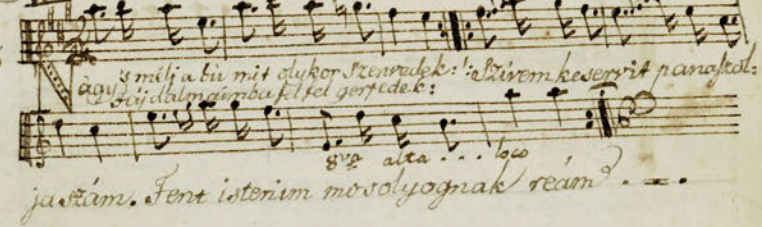 's mélj a bú mit olykor szenvedek: Szívem keservit panaszol:
ágy fájdalmaimba fel fel gerjedek:
8va alta . . . loco
ja szám. Fent istenim mosolyognak reám